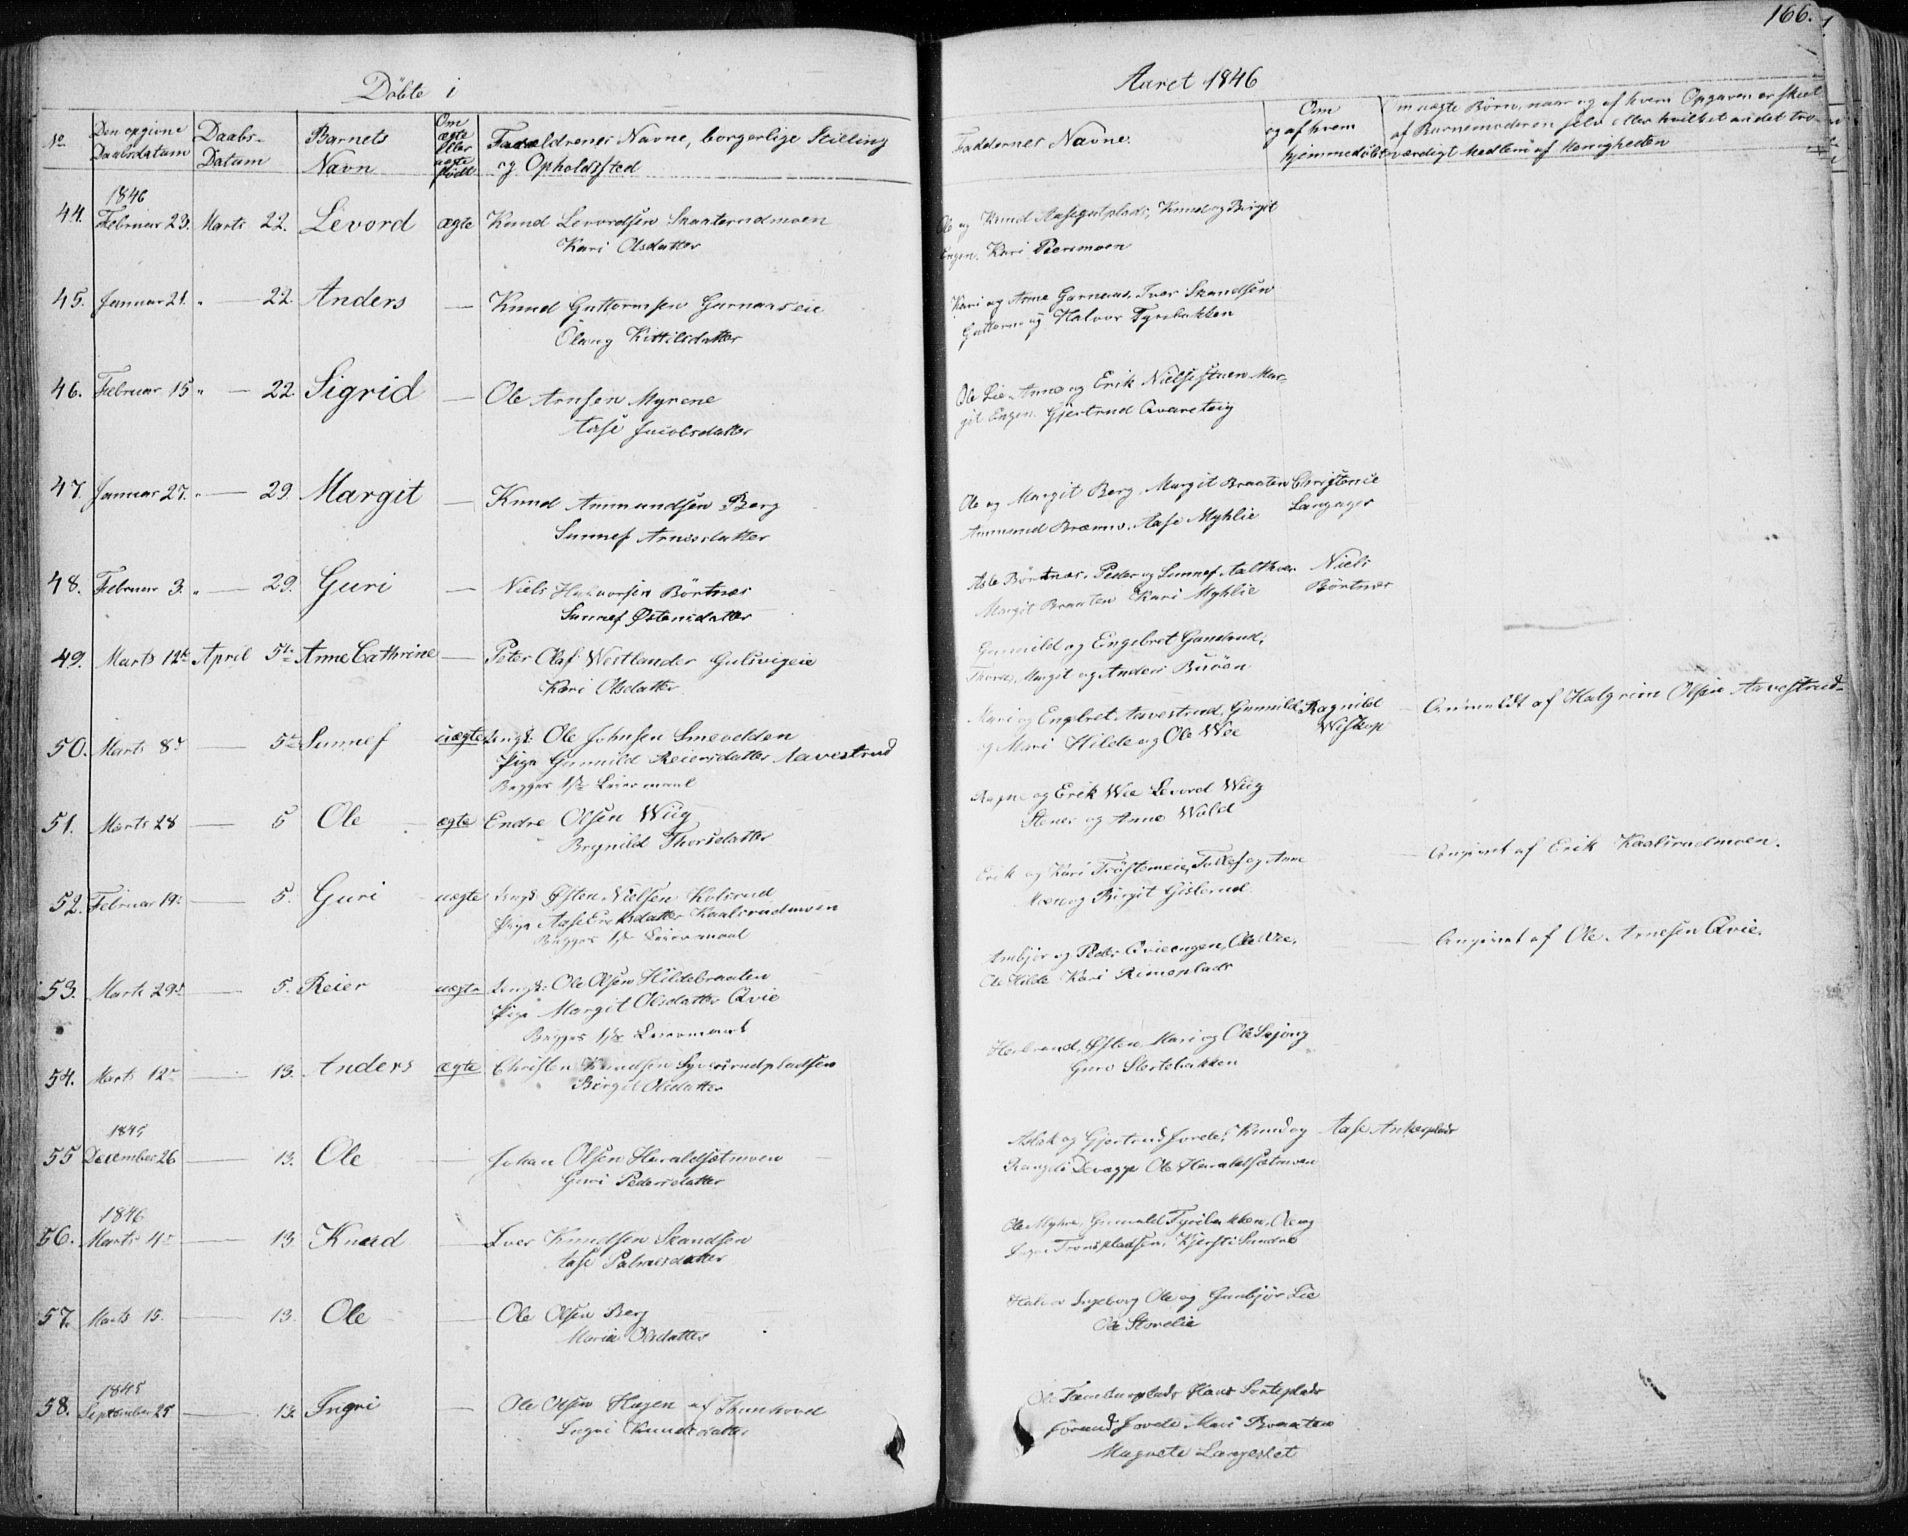 166.
Döbte i
Aaret 1846
No
Den opgivne Daabsdatum
Daabs-Datum
Barnets Navn
Om ægte eller uægte født
Forældrenes Navne, borgerlige Stilling og Opholdssted
Faddernes Navne.
Om og af hvem hjemmedöbt
Om uægte Börn, naar og af hvem Opgaven er skeet
af Barnemoderen selv eller hvilket andet tro-
værdigt Medlem af Menigheden
1846
44. Februar 23. Marts 22. Levord ægte Knud Levordsen Skaaterudmoen
Kari Olsdatter
Ole og Knud Knud og Birgit
Engen. Kari Piersmoen
45. Januar 21. " — 22. Anders — Knud Guttormsen Garnaaseie
Olaug Kittilsdatter
Kari og Anne Garnaas, Iver Skandsen
Guttorm og Halvor Tyribakken
46. Februar 15 " — 22. Sigrid — Ole Arnsen Myrene
Aase Jacobsdatter
Ole Lie, Anne og Erik Nielsestuen Mar-
git Engen. Gjertrud Qvareteig
47. Januar 27. " — 29. Margit — Knud Ammundsen Berg
Sunnef Arnesdatter
Ole og Margit Berg, Margit Braaten Christense
Ammund Aase Myhlie Langager
48. Februar 3. " — 29. Guri — Niels Halvorsen Börtnæs
Sunnef Østensdatter
Asle Börtnæs, Peder og Sunnef Niels
Margit Braaten Kari Myhlie Börtnæs
49. Marts 12te April 5te Anne Cathrine — Peter Olaf Westlander Gulsvigeie
Kari Olsdatter
Gunnild og Engebret Gandrud,
Margit og Anders Buöen
50. Marts 8de — 5te Sunnef uægte Ungk: Ole Johnsen Smevolden
Pige Gunnild Reiersdatter Aavestrud
Begges 1ste Leiermaal
Mari og Engbret Aavestrud, Gunnild Ragnild
og Mari Hilde og Ole Wee Wiskop
Anmeldt af Halgrim Olsen Aavestrud.
51. Marts 28 — 5 Ole ægte Endre Olsen Wiig
Brynild Thorsdatter
Ragne og Erik Wee Levord Wiig
Stener og Anne Wold
52. Februar 19de — 5. Guri uægte Ungk: Østen Nielsen Kolsrud
Pige Aase Eriksdatter Kaalsrudmoen
Begges 1ste Leiermaal
Erik og Kari Tröstemeie, Tollef og Anne
Moen og Birgit Gislerud
Angivet af Erik Kaalsrudmoen.
53. Marts 29de — 5. Reier uægte Ungk: Ole Olsen Hildebraaten
Pige Margit Olsdatter Qvie
Begges 1ste Leiermaal
Ambjör og Peder Qvieengen, Ole Wee,
Ole Hilde Kari Rimeplads
Angivet af Ole Arnesen Qvie.
54. Marts 12te — 13. Anders ægte Christen Knudsen Syversrudpladsen
Birgit Olsdatter
Herbrand, Østen, Mari og Ole Sejong
Guro Slettebakken
1845
55 December 26 — 13. Ole — Johan Olsen Haraldsetmoen
Guri Pedersdatter
Aslak og Gjertrud Jorde, Knud og Aase
Ole Haraldsetmoen
1846
56. Marts 4de — 13 Knud — Iver Knudsen Skandsen
Aase Palmesdatter
Ole Myhre, Gunuld Tyribakken, Ole og
Kjersti Sundre
57. Marts 15. — 13. Ole — Ole Olsen Berg
Marie Olsdatter
Halvor Ingeborg Ole og Gunbjör Lie
Ole Storelie
1845
58. September 25 — 13. Ingri — Ole Olsen Hagen af Tunhovd
Ingri Knudsdatter
Ole Hans Sorteplads
Jorde Mari Braaten
Magnete Langeslet